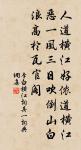 人道橫江好儂道橫江
惡一風三日吹倒山白
浪高於瓦官閣
李白橫江詞其一詞典
網